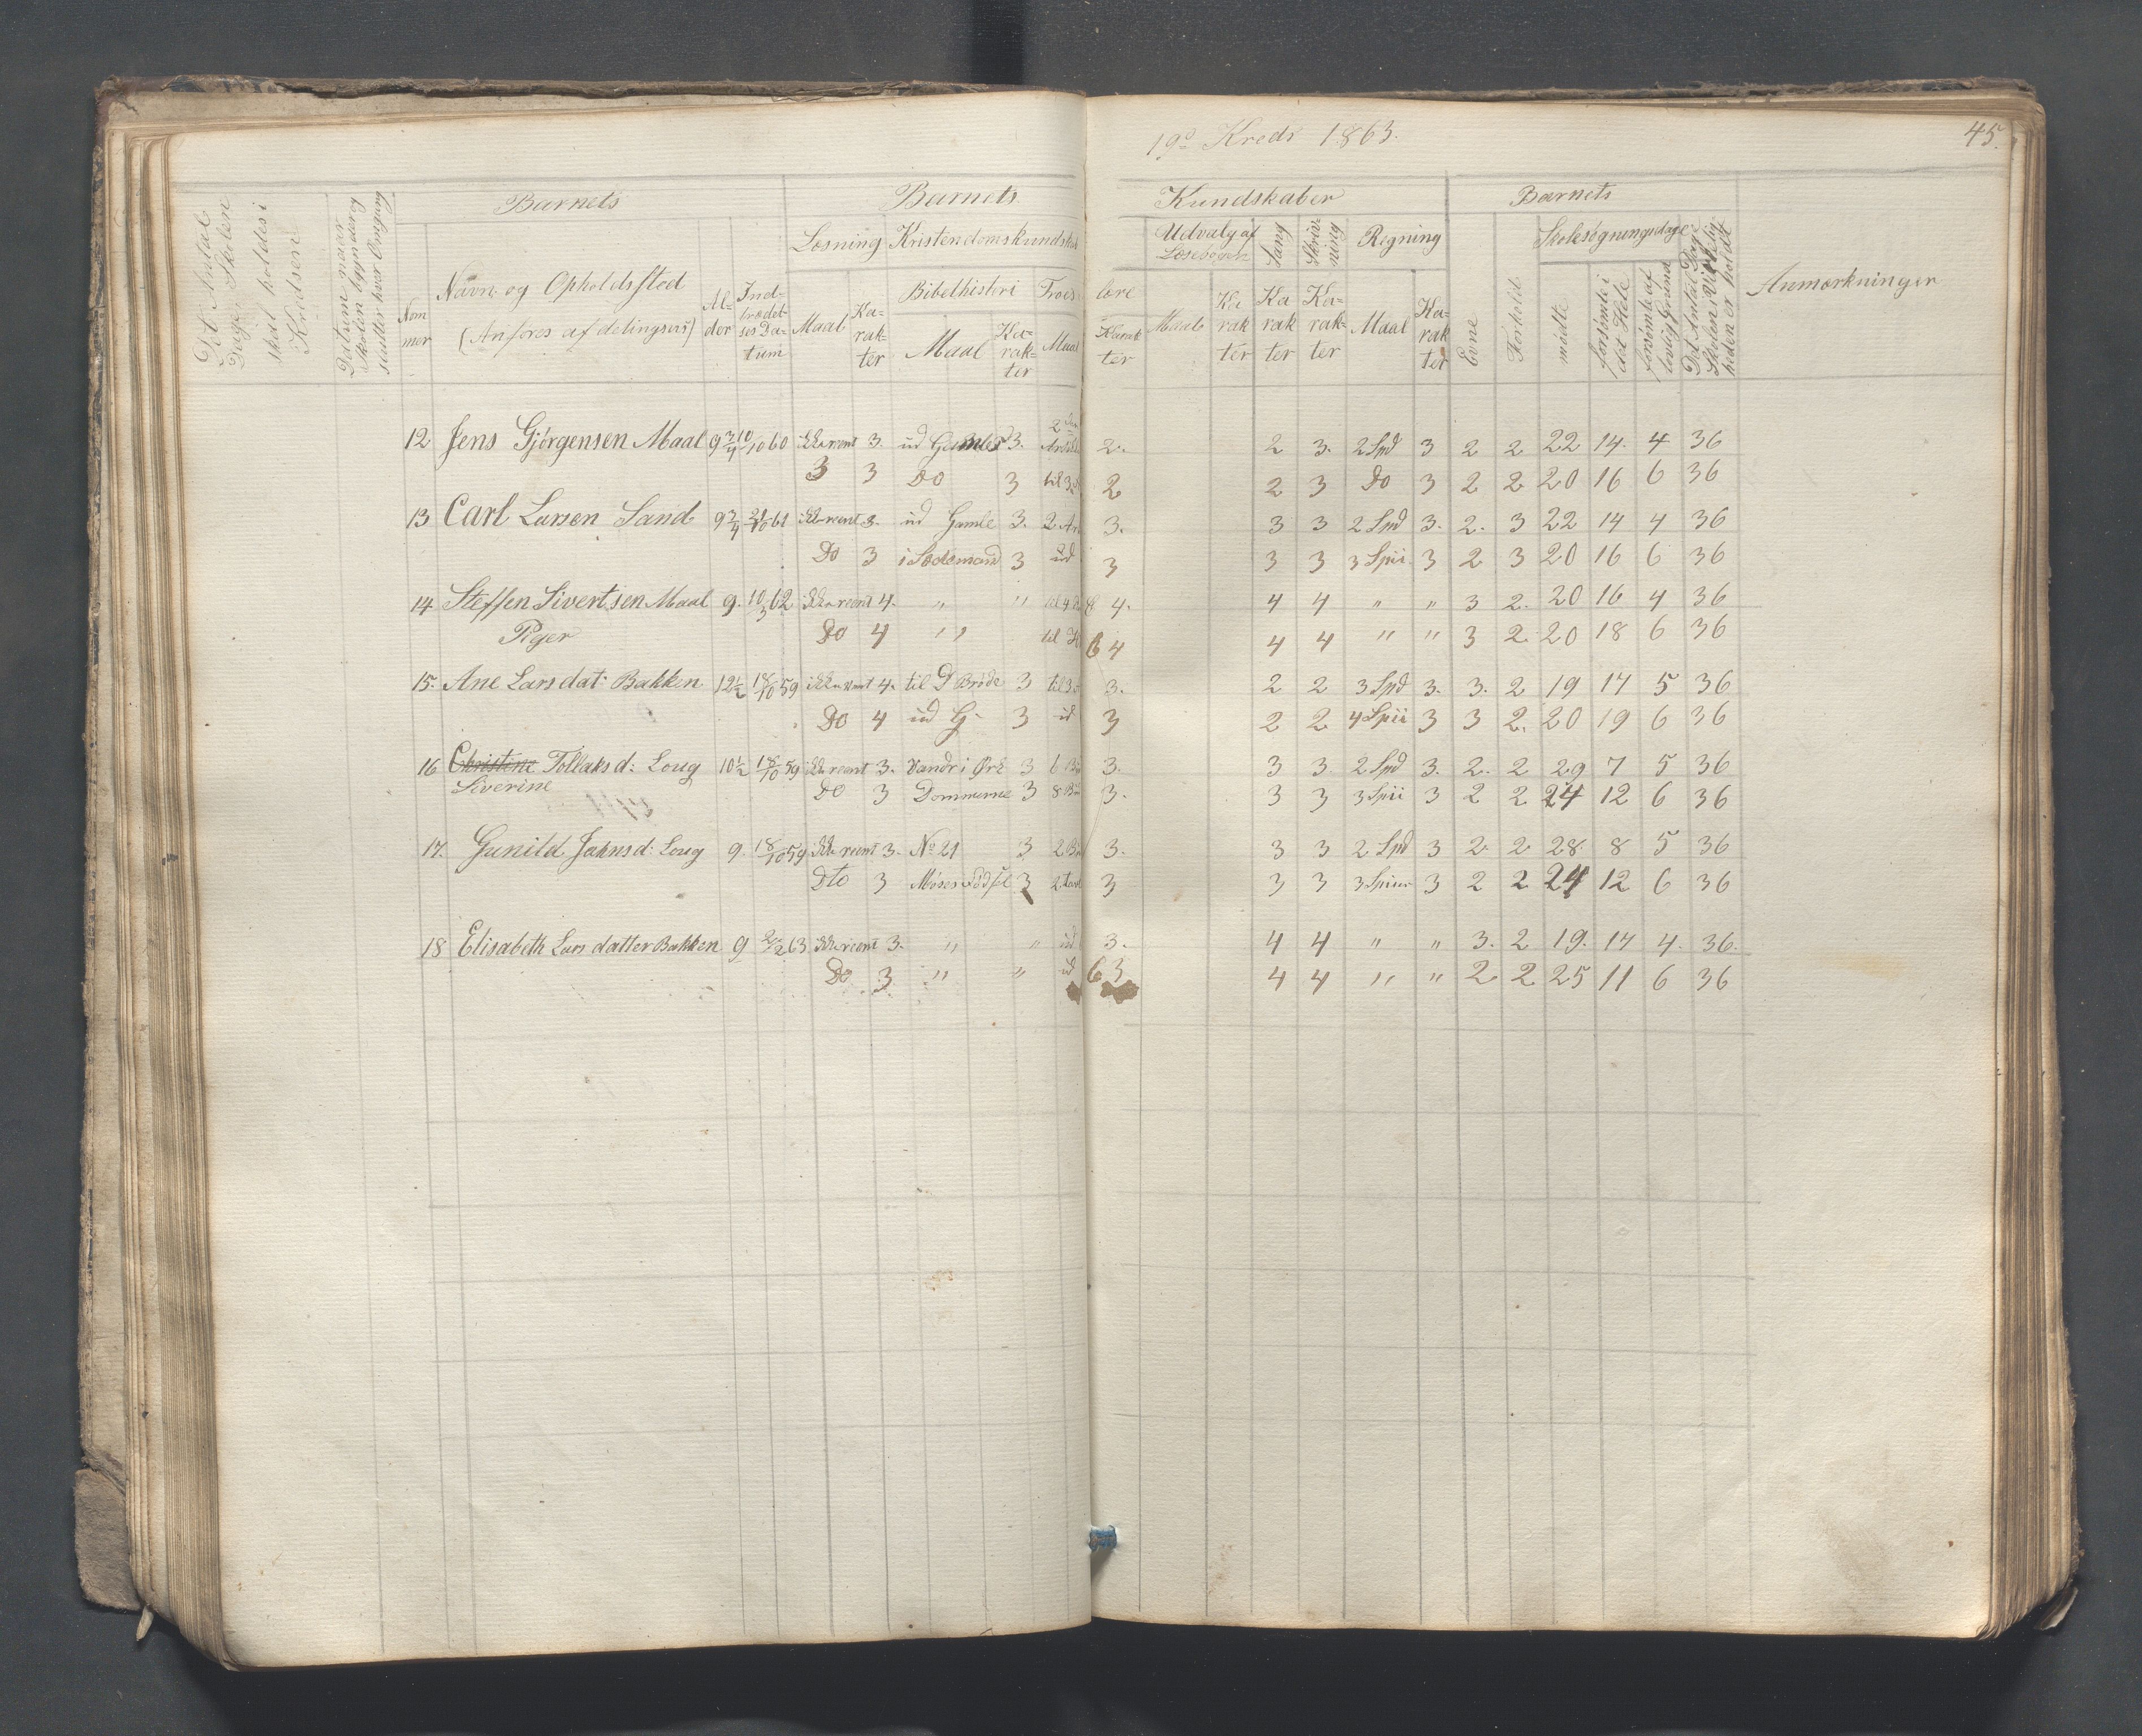 19de Kreds 1863.
45.
Det Antal Dage Skolen skal holdes i Kredsen
Datum naar Skolen begynder og slutter hver Omgang
Barnets
Nommer
Navn og Opholdssted
(Anføres afdelingsvis)
Alder
Indtrædelses Datum
Barnets
Læsning
Maal
Karakter
Kristendomskundskab
Bibelhistori
Maal
Karakter
Troes
Maal
Kundskaber
lære
Karakter
Udvalg af Læsebogen
Maal
Karakter
Sang
Karakter
Skrivning
Karakter
Regning
Maal
Karakter
Barnets
Evne
Forhold
Skolesøgningsdage
mødte
forsømte i det Hele
forsømte af lovlig Grund
Det Antal Dage Skolen i Virkeligheden er holdt
Anmærkninger
12 Jens Gjørgensen Maal 9 3/4 10/10 60 ikke reent 3. ud Gamle 3. 2. 2 3. 2 Spd 3 2 2 22 14. 4 36
3 3 Do 3 2 2 3 Do 3 2 2 20 16 6 36
13 Carl Larsen Sand 9 3/4 21/10 61 ikke reent 3. ud Gamle 3. 3. 3 3 2 Spd 3. 2. 3 22 14 4 36
Do 3 3 ud 3 3 3 3 Spii 3 2 3 20 16 6 36
14 Steffen Sivertsen Maal 9. 10/3 62 ikke reent 4. " " 4. 4 4 " " 3 2. 20 16 4 36
Piger Do 4 " til 6 4 4 4 " " 3 2. 20 18 6 36
15. Ane Larsdat: Bakken 12 1/2 18/10 59 ikke reent 4. til D Bröde 3 3. 2 2 3 Spd 3. 3. 2 19 17 5 36
Do 4 ud G. 3 ud 3 2 2 4 Spii 3 3 2. 20 19 6 36
16 Christine Tollaks d: Loug 10 1/2 18/10 59 ikke reent 3. Vandr i Ørk 3 3. 3 3. 2 Spd 3. 2. 2 29 7 5 36
Siverine Do 3 Dommerne 3 3. 3 3 3 Spii 3 2 2 24 12 6 36
17. Gunild Jahnsd: Loug 9. 18/10 59 ikke reent 3. No 21 3 3. 3 3 2 Spd 3 2. 2 28 8 5 36
Dto 3 Moses födsl 3 3 3 3 3 2 2 24 12 6 36
18 Elisabeth Lars datter Bakken 9 2/2 63 ikke reent 3. " " ud 3. 4 4 " " 3. 2 19. 17 4. 36.
Do 3 " " ud 6 3 4 4 " " 2 2 25 11 6 36